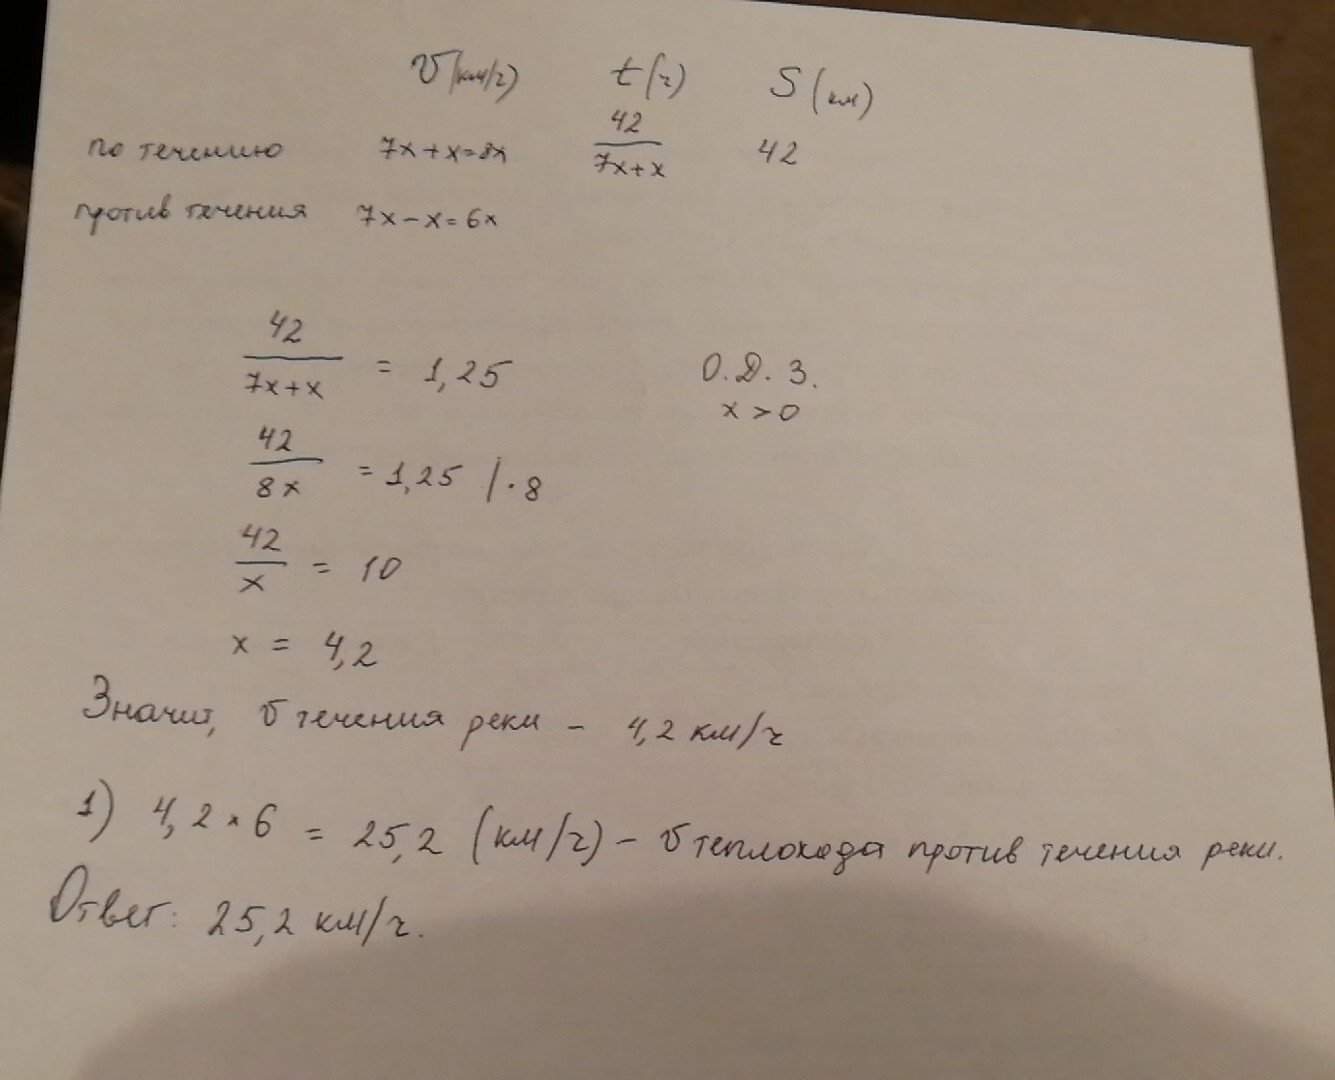 v (км/ч) t (ч) S (км)
по течению 7x+x=8x 42/(7x+x) 42
против течения 7x-x=6x
42/(7x+x) = 1,25 О.Д.З.
x>0
42/(8x) = 1,25 |·8
42/x = 10
x = 4,2
Значит, v течения реки - 4,2 км/ч
1) 4,2 × 6 = 25,2 (км/ч) - v теплохода против течения реки.
Ответ: 25,2 км/ч.